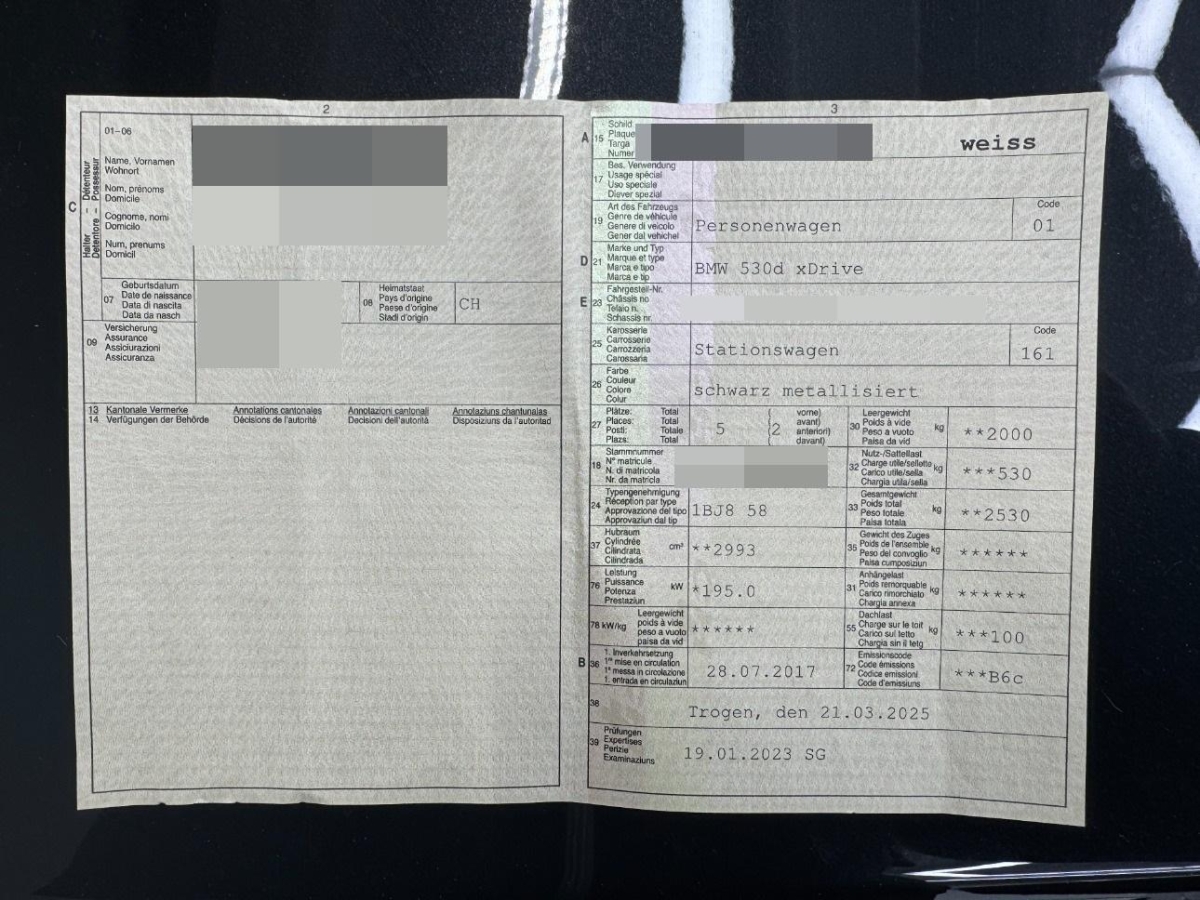 2
01-06
C
Halter – Détenteur
Detentore – Possessur
Name, Vornamen
Wohnort
Nom, prénoms
Domicile
Cognome, nomi
Domicilo
Num, prenums
Domicil
07
Geburtsdatum
Date de naissance
Data di nascita
Data da nasch
08
Heimatstaat
Pays d'origine
Paese d'origine
Stadi d'origin
CH
09
Versicherung
Assurance
Assiciurazioni
Assicuranza
13 Kantonale Vermerke Annotations cantonales Annotazioni cantonali Annotaziuns chantunalas
14 Verfügungen der Behörde Décisions de l'autorité Decisioni dell'autorità Disposiziuns da l'autoritad
3
A 15
Schild
Plaque
Targa
Numer
weiss
17
Bes. Verwendung
Usage spécial
Uso speciale
Diever spezial
19
Art des Fahrzeugs
Genre de véhicule
Genere di veicolo
Gener dal vehichel
Personenwagen
Code
01
D 21
Marke und Typ
Marque et type
Marca e tipo
Marca e tip
BMW 530d xDrive
E 23
Fahrgestell-Nr.
Châssis no
Telaio n.
Schassis nr.
25
Karosserie
Carrosserie
Carrozzeria
Carossaria
Stationswagen
Code
161
26
Farbe
Couleur
Colore
Colur
schwarz metallisiert
27
Plätze: Total
Places: Total
Posti: Totale
Plazs: Total
5
(2
vorne)
avant)
anteriori)
davant)
30
Leergewicht
Poids à vide
Peso a vuoto
Paisa da vid
kg
**2000
18
Stammnummer
N° matricule
N. di matricola
Nr. da matricla
32
Nutz-/Sattellast
Charge utile/sellette
Carico utile/sella
Chargia utila/sella
kg
***530
24
Typengenehmigung
Réception par type
Approvazione del tipo
Approvaziun dal tip
1BJ8 58
33
Gesamtgewicht
Poids total
Peso totale
Paisa totala
kg
**2530
37
Hubraum
Cylindrée
Cilindrata
Cilindrada
cm³
**2993
35
Gewicht des Zuges
Poids de l'ensemble
Peso del convoglio
Paisa cumposiziun
kg
******
76
Leistung
Puissance
Potenza
Prestaziun
kW
*195.0
31
Anhängelast
Poids remorquable
Carico rimorchiato
Chargia annexa
kg
******
78 kW/kg
Leergewicht
poids à vide
peso a vuoto
paisa da vid
******
55
Dachlast
Charge sur le toit
Carico sul tetto
Chargia sin il tetg
kg
***100
B 36
1. Inverkehrsetzung
1re mise en circulation
1a messa in circolazione
1. entrada en circulaziun
28.07.2017
72
Emissionscode
Code émissions
Codice emissioni
Code d'emissiuns
***B6c
38
Trogen, den 21.03.2025
39
Prüfungen
Expertises
Perizie
Examinaziuns
19.01.2023 SG